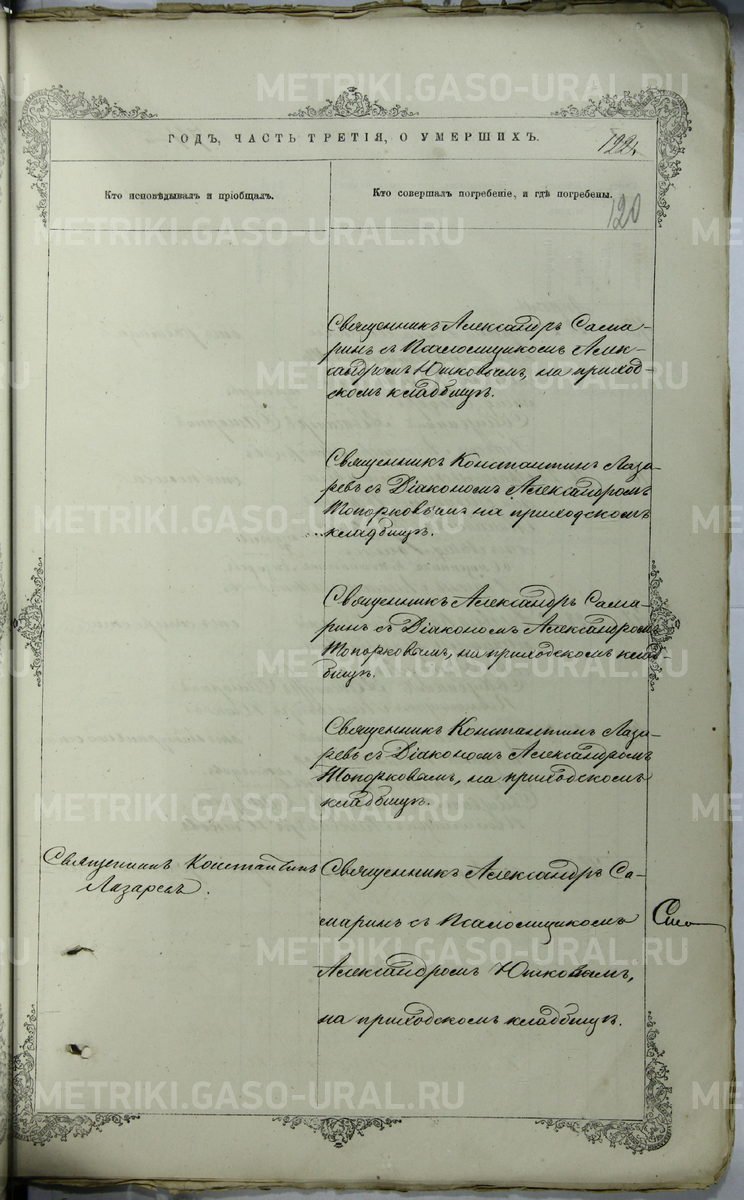 METRIKI.GASO-URAL.RU
ГОДЪ, ЧАСТЬ ТРЕТІЯ, О УМЕРШИХЪ.
122
Кто исповѣдывалъ и пріобщалъ.
Кто совершалъ погребеніе, и гдѣ погребены.
120
Священникъ Александръ Сама-
ринъ съ Псаломщикомъ Алек-
сандромъ Юшковымъ, на приход-
скомъ кладбищѣ.
Священникъ Константинъ Лаза-
ревъ съ Діакономъ Александромъ
Топорковымъ на приходскомъ
кладбищѣ.
Священникъ Александръ Сама-
ринъ съ Діакономъ Александромъ
Топорковымъ, на приходскомъ клад-
бищѣ.
Священникъ Константинъ Лаза-
ревъ съ Діакономъ Александромъ
Топорковымъ, на приходскомъ
кладбищѣ.
Священникъ Константинъ
Лазаревъ.
Священникъ Александръ Са-
маринъ съ Псаломщикомъ
Александромъ Юшковымъ,
на приходскомъ кладбищѣ.